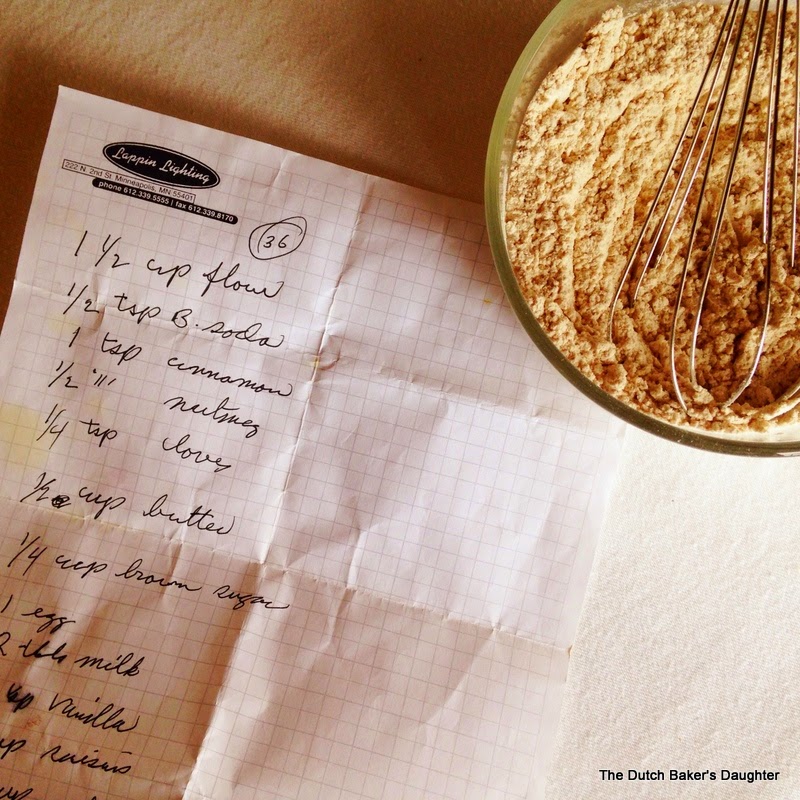 Lappin Lighting
222 N. 2nd St. Minneapolis, MN 55401
phone 612.339.5555 | fax 612.339.8170
36
1 1/2 cup flour
1/2 tsp B. soda
1 tsp cinnamon
1/2 "" nutmeg
1/4 tsp cloves
1/2 cup butter
1/4 cup brown sugar
1 egg
2 tbls milk
tsp vanilla
up raisins
The Dutch Baker's Daughter